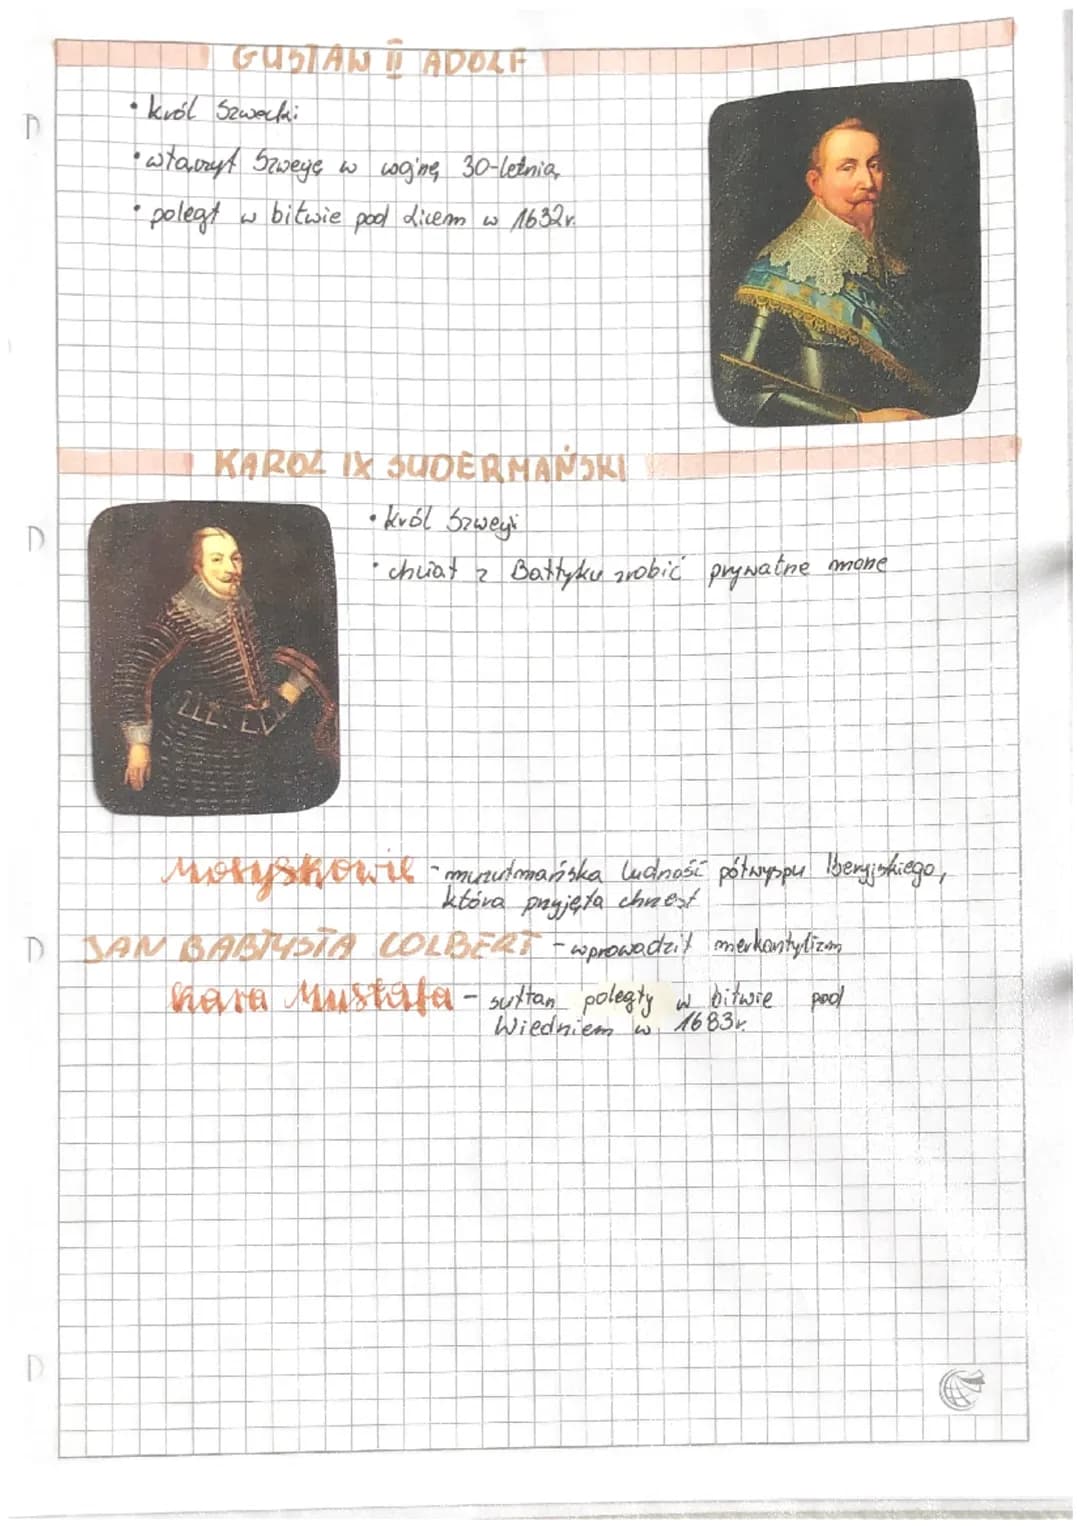 GUSTAW II ADOLF
• król Szwecki
• włączył Szwecję w wojnę 30-letnią
• poległ w bitwie pod Licem w 1632r.
KAROL IX SUDERMAŃSKI
• król Szwecji
• chciał z Bałtyku zrobić prywatne morze
Moryskowie - muzułmańska ludność półwyspu Iberyjskiego,
która przyjęła chrzest
JAN BABTYSTA COLBERT - wprowadził merkantylizm
Kara Mustafa - sułtan poległy w bitwie pod
Wiedniem w 1683r.